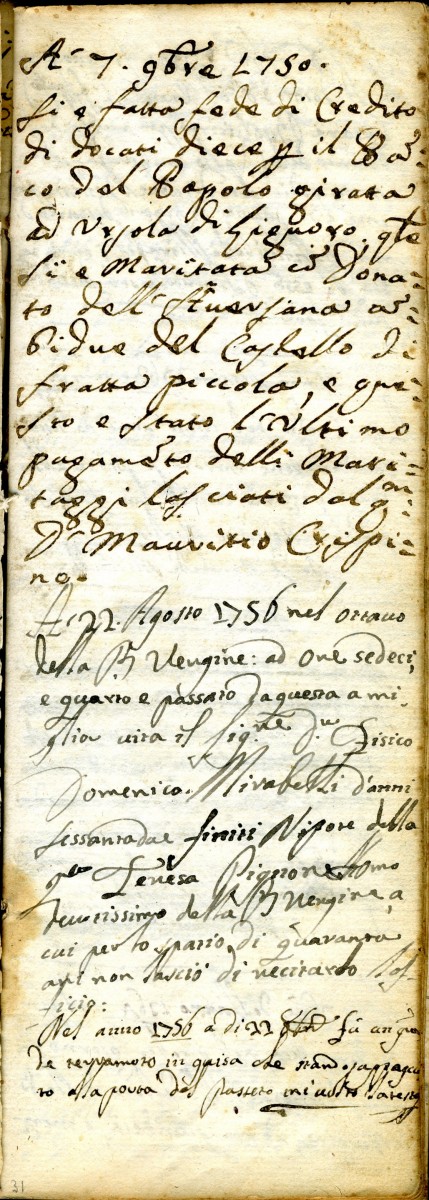 A 7. 9bre 1750.
Si e fatta fede di Credito
di docati diece p il Ba=
co del Popolo girata
ad Ursola di Liguoro, qle
si e Maritata co Dona=
to dell'Aversana a=
bidue del Castello di
fratta piccola, e que=
sto e stato l'Ultimo
pagameto delli Mari=
taggi lasciati dal qm
D. Mauritio Crispi=
no.
A 22. Agosto 1756 nel ottavo
della B Vergine: ad ore sedeci,
e quarto e passato da questa a mi
glior vita il Sigre Dr Fisico
Domenico Mirabelli d'anni
sessantadue finiti Nipote della
qm Teresa Pignone Homo
devotissimo della B Vergine, a
cui per lo spatio di quaranta
ani non lasciò di recitarlo l'of
ficio:
Nel anno 1756 a di 22 fù un gra
de terramoto in guisa che stando appoggia
to alla porta del